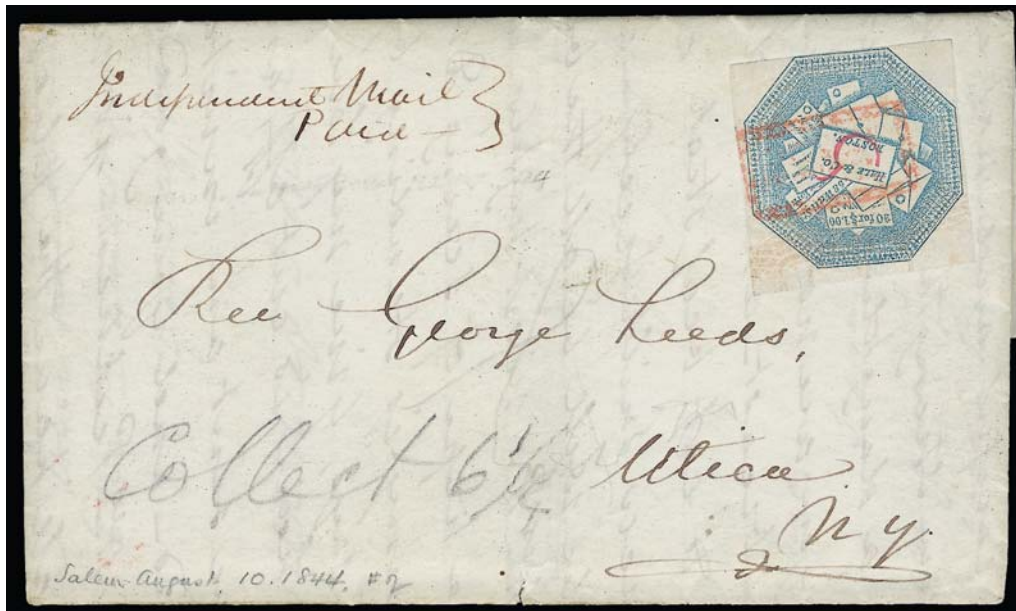 Independent Mail
Paid
HALE & CO.
BOSTON.
20 for $1.00
Rev George Leeds,
Collect 6¼
Utica
N Y.
Salem August 10. 1844.